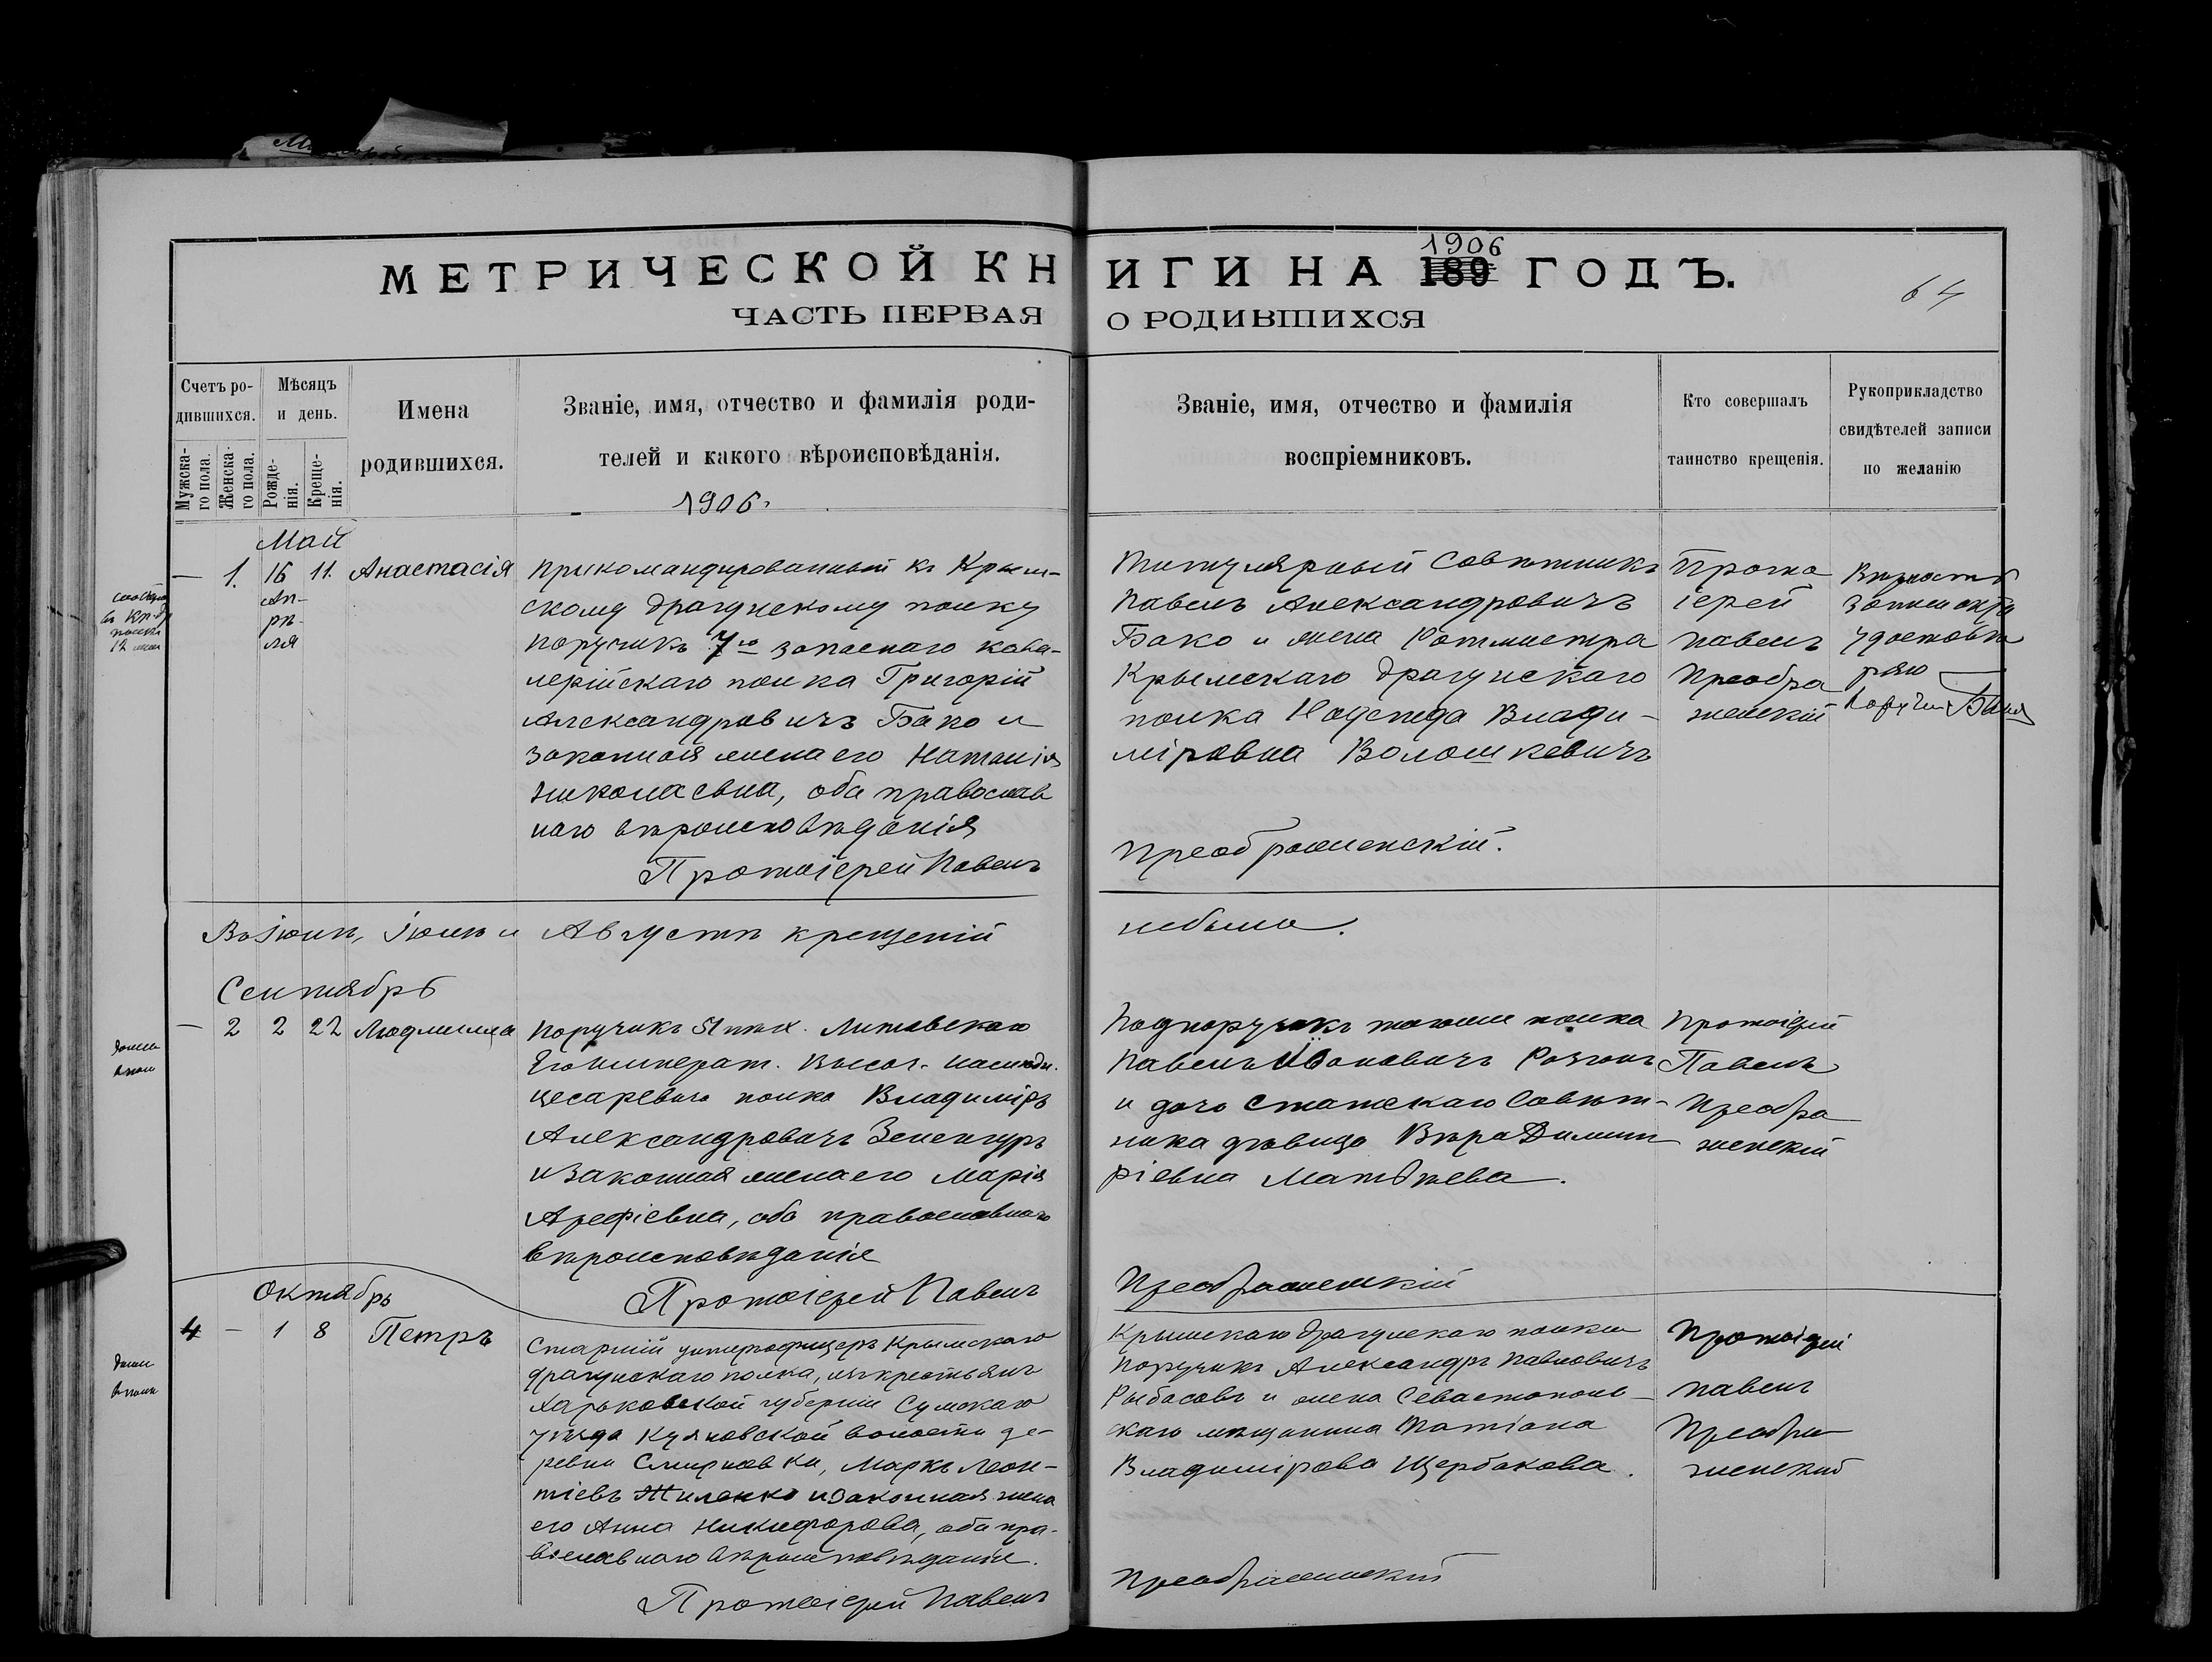 МЕТРИЧЕСКОЙ КНИГИ НА 1906 189 ГОДЪ.
64
ЧАСТЬ ПЕРВАЯ О РОДИВШИХСЯ
Счетъ ро-
дившихся.
Мужска-
го пола.
Женска-
го пола.
Мѣсяцъ
и день.
Рожде-
нія.
Креще-
нія.
Имена
родившихся.
Званіе, имя, отчество и фамилія роди-
телей и какого вѣроисповѣданія.
1906 г.
Званіе, имя, отчество и фамилія
воспріемниковъ.
Кто совершалъ
таинство крещенія.
Рукоприкладство
свидѣтелей записи
по желанію
Май
— 1. 16 11. Анастасія
Ап-
рѣ-
ля
Прикомандированный къ Крым-
скому драгунскому полку
поручикъ 7го запаснаго кава-
лерійскаго полка Григорій
Александровичъ Бако и
законная жена его Наталія
Николаевна, оба православ
наго вѣроисповѣданія
Протоіерей Павелъ
Титулярный Совѣтникъ
Павелъ Александровичъ
Бако и жена Ротмистра
Крымскаго драгунскаго
полка Надежда Влади-
міровна Волошкевичъ
Преображенскій.
Прото
іерей
Павелъ
Преобра
женскій
Вѣрность
записи
удостовѣ
ряю
Въ Іюнѣ, Іюлѣ и Августѣ крещеній небыло.
Сентябрь
— 2 2 22 Людмила
Поручикъ 51 пѣх. Литовскаго
Его Императ. Высоч. Наслѣдн.
цесаревича полка Владиміръ
Александровичъ Зененгуръ
и законная жена его Марія
Арефіевна, оба православнаго
вѣроисповѣданія
Протоіерей Павелъ
Подпоручикъ того же полка
Павелъ Ивановичъ
и дочь Статскаго Совѣт-
ника дѣвица Вѣра Димит
ріевна Матвѣева.
Преображенскій
Протоіерей
Павелъ
Преобра
женскій
Октябрь
4 — 1 8 Петръ
Старшій унтерофицеръ Крымскаго
драгунскаго полка, изъ крестьянъ
Харьковской губерніи Сумскаго
уѣзда Куяновской волости де-
ревни Смирновки, Маркъ Леон-
тіевъ Жиленко и законная жена
его Анна Никифорова, оба пра-
вославнаго вѣроисповѣданія.
Протоіерей Павелъ
Крымскаго драгунскаго полка
поручикъ Александръ Павловичъ
Рыбасовъ и жена Севастополь-
скаго мѣщанина Татіана
Владимірова Щербакова.
Преображенскій
Протоіерей
Павелъ
Преобра
женскій